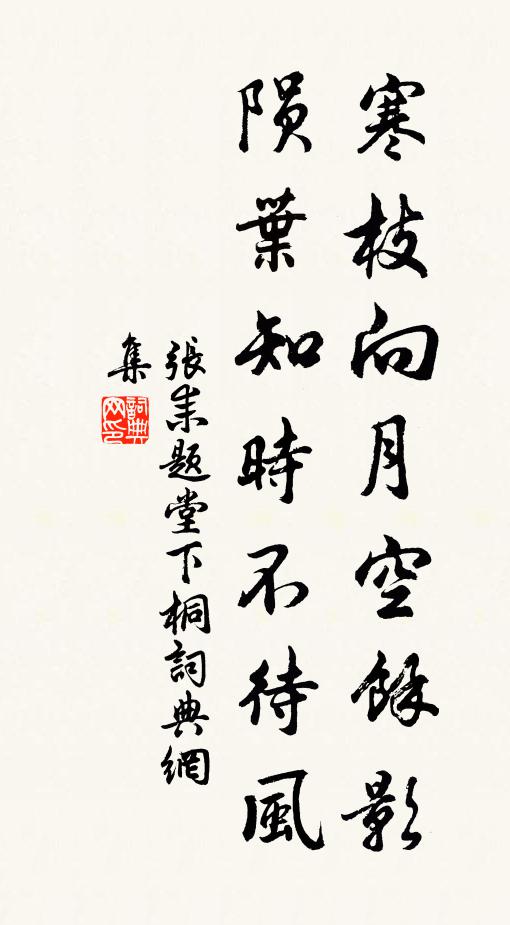 寒枝向月空餘影
隕葉知時不待風
張耒題堂下桐詞典網
集
詞典
网印